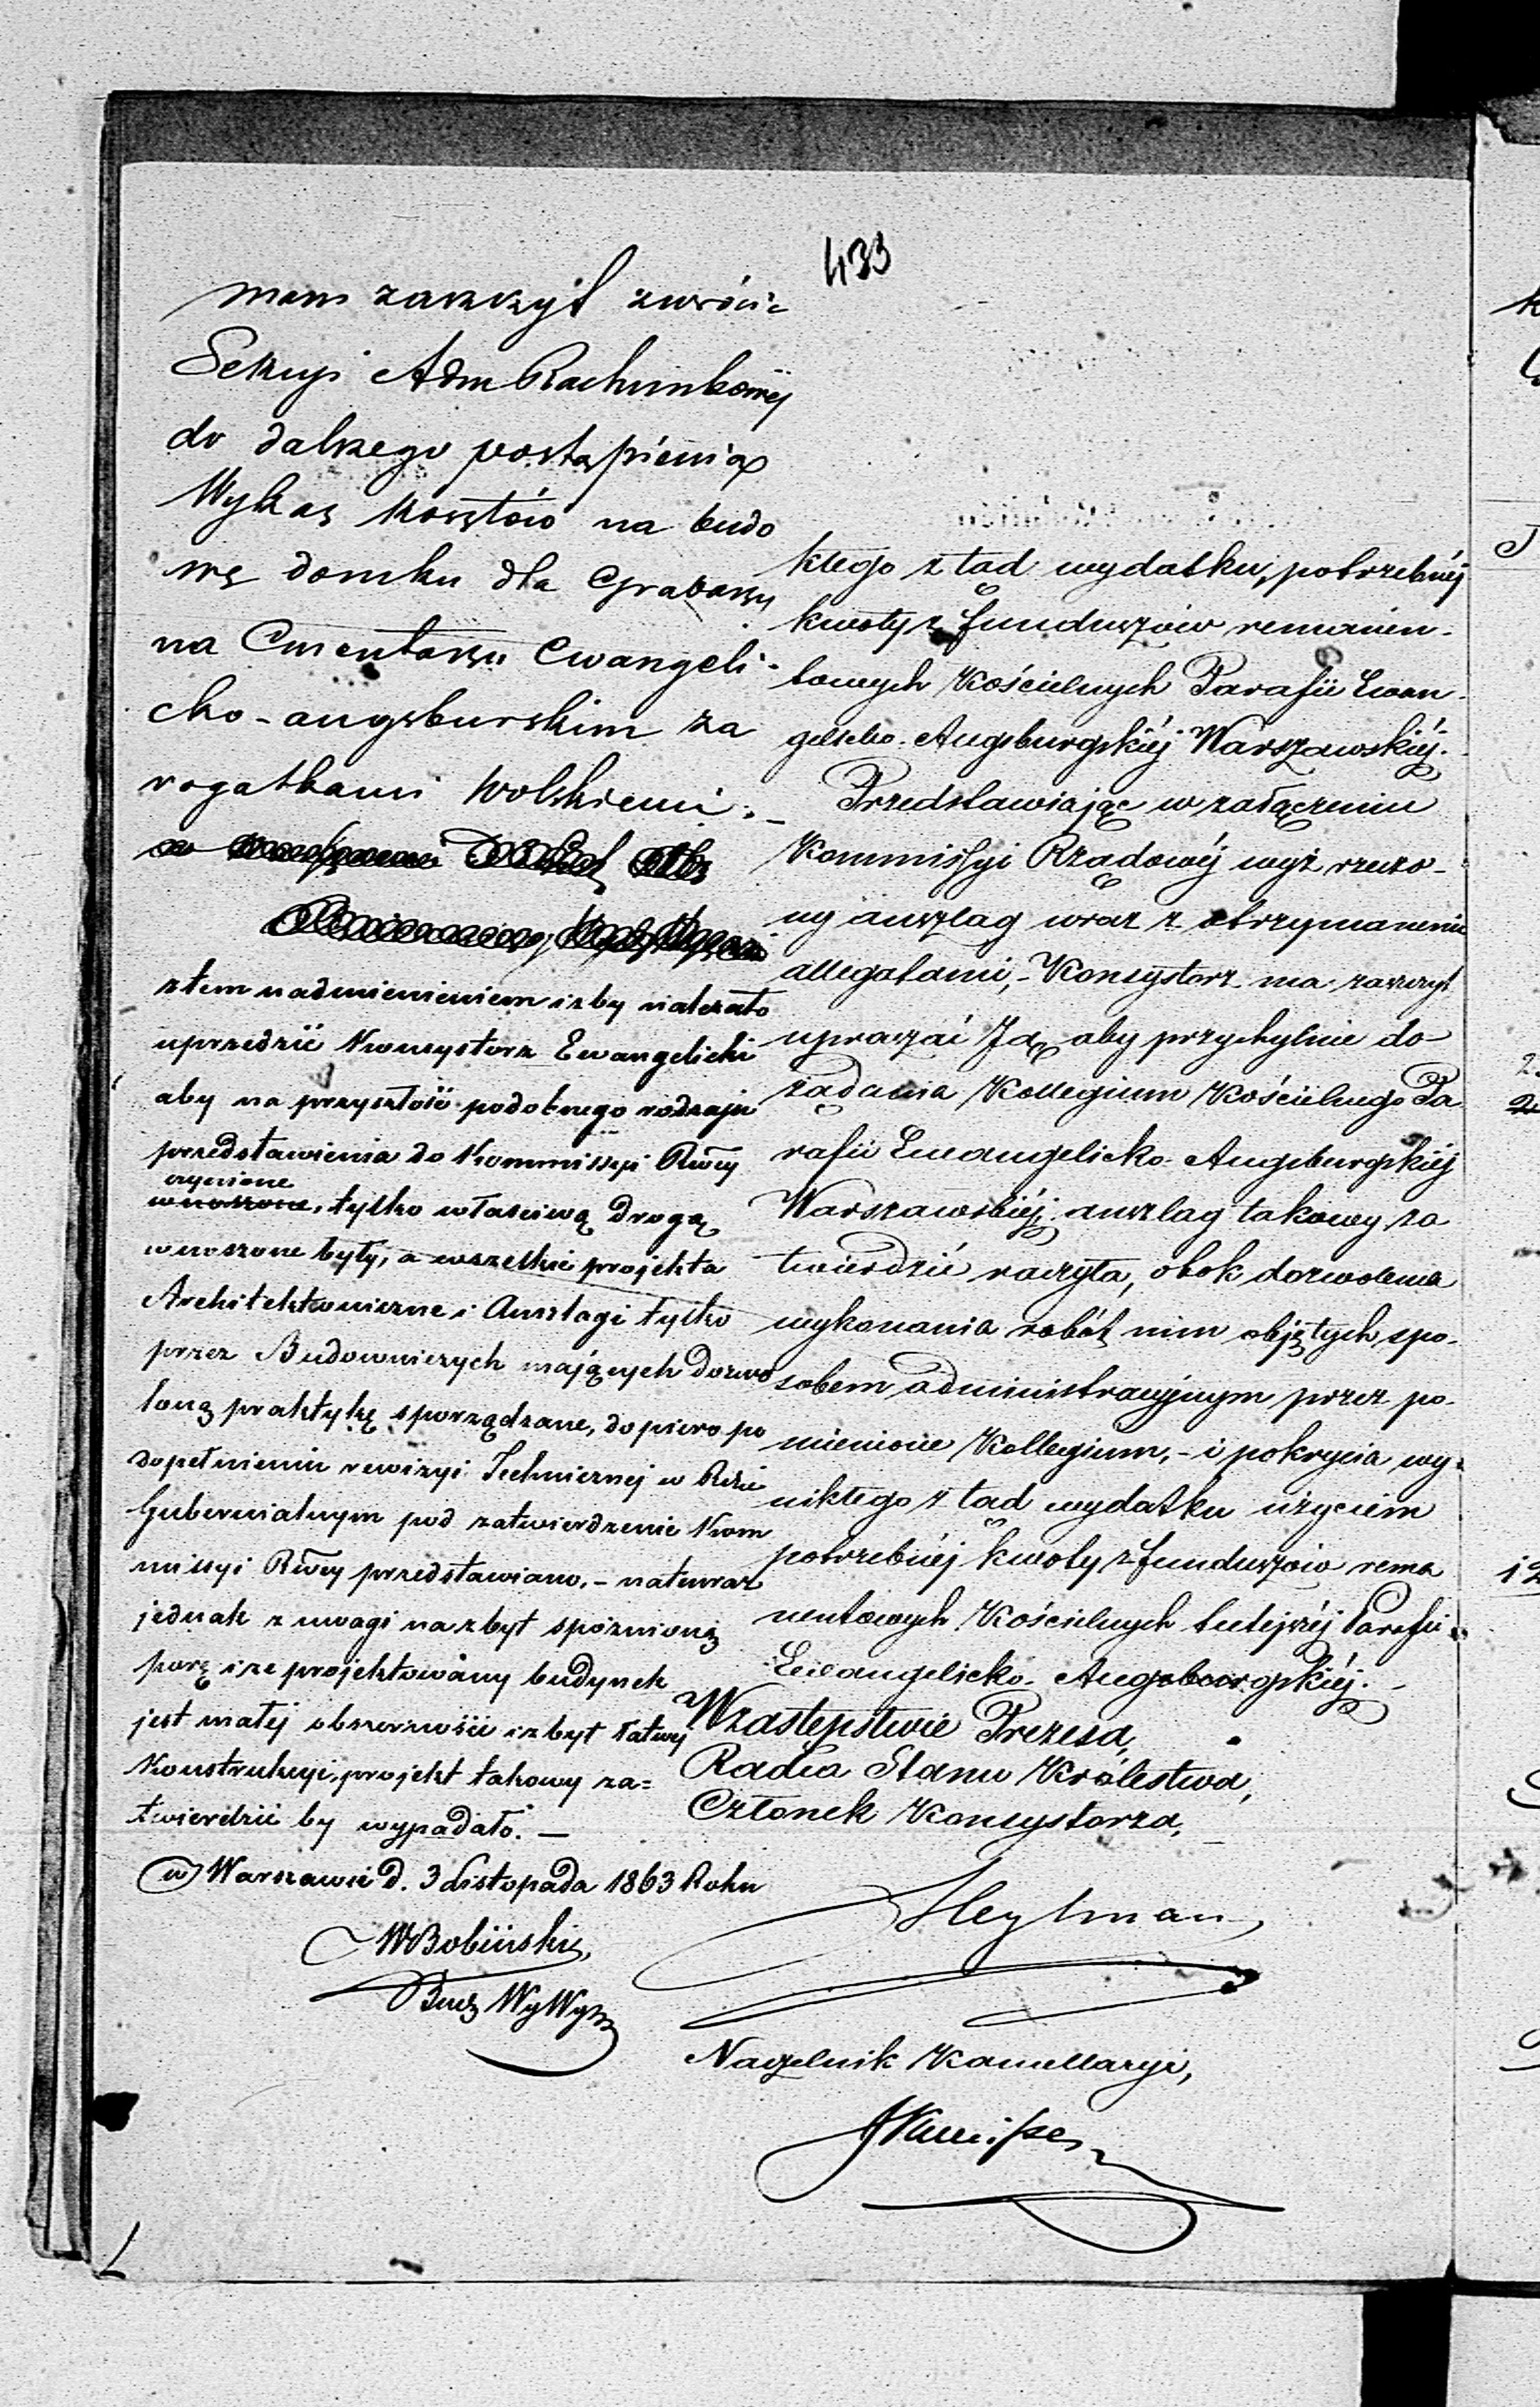 433
mam zaszczyt zwrócić
Sekcyi Adm Rachunkowéj
do dalszego postąpienia
Wykaz kosztów na budo
wę domku dla Grabarzy
na Cmentarzu Ewangeli-
cko-augsburskim za
rogatkami Wolskiemi. –
z tem nadmienieniem iżby należało
uprzedzić Konsystorz Ewangelicki
aby na przyszłość podobnego rodzaju
przedstawienia do Kommissyi Rwéy
czynione
wnoszone, tylko właściwą drogą
wnoszone były, a wszelkie projekta
Architektoniczne i Anszlagi tylko
przez Budowniczych mających dozwo
loną praktykę sporządzane, dopiero po
dopełnieniu rewizyi Technicznej w Rzdzie
Gubernialnym pod zatwierdzenie Kom
missyi Rwéy przedstawiano. – na teraz
jednak z uwagi na zbyt spóźnioną
porę i że projektowany budynek
jest małéj obszerności i zbyt łatwéj
Konstrukcyi, projekt takowy za=
twierdzić by wypadało. –
w Warszawie d. 3 Listopada 1863 Roku
WBobiński
Bud. Wy Wyz
kłego z tąd wydatku, potrzebnéj
kwoty z funduszów remanen-
towych Kościelnych Parafii Ewan-
gelicko-Augsburgskiéj Warszawskiéj.
Przedstawiając w załączeniu
Kommissyi Rządowéj wyż rzeczo-
ny anszlag wraz z otrzymanemi
allegatami, – Konsystorz ma zaszczyt
upraszać Ją, aby przychylnie do
żądania Kollegium Kościelnego Pa
rafii Ewangelicko-Augsburgskiéj
Warszawskiéj, anszlag takowy za
twierdzić raczyła, obok dozwolenia
wykonania robót nim objętych, spo-
sobem administracyjnym przez po-
mienione Kollegium, – i pokrycia wy-
nikłego z tąd wydatku użyciem
potrzebnéj kwoty z funduszów rema
nentowych Kościelnych tutejszéj Parafii
Ewangelicko-Augsburgskiéj. –
W zastępstwie Prezesa,
Radca Stanu Królestwa,
Członek Konsystorza,
Heylman
Naczelnik Kancellaryi,